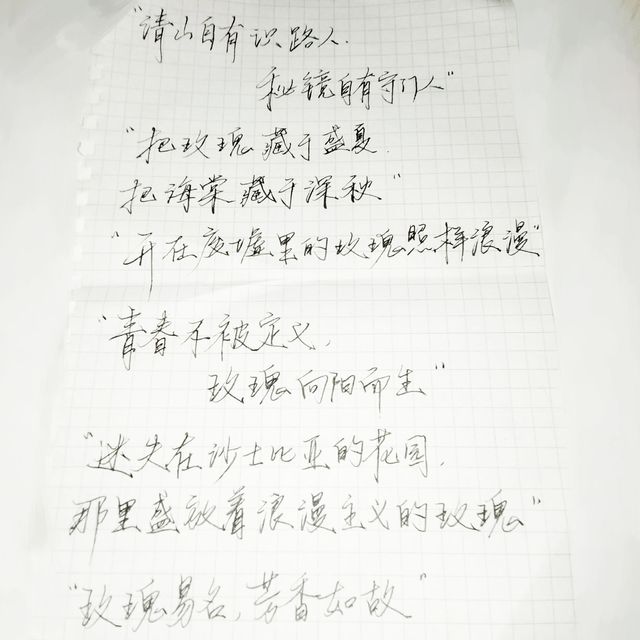 "请山自有识路人.
秘镜自有守门人"
"把玫瑰藏于盛夏.
把海棠藏于深秋"
"开在废墟里的玫瑰照样浪漫"
"青春不被定义,
玫瑰向阳而生"
"迷失在沙士比亚的花园,
那里盛放着浪漫主义的玫瑰"
"玫瑰易名,芳香如故"